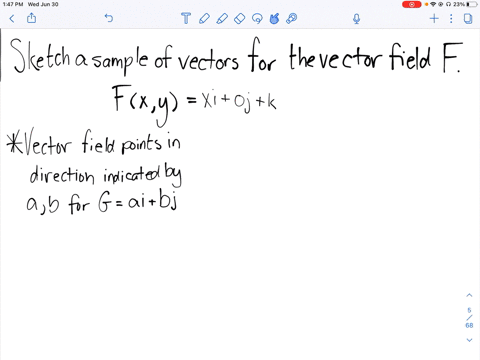 1:47 PM Wed Jun 30
23%
Sketch a sample of vectors for the vector field F.
F(x,y) = xi + 0j + k
*Vector field points in
direction indicated by
a,b for G = ai + bj
5
/
68